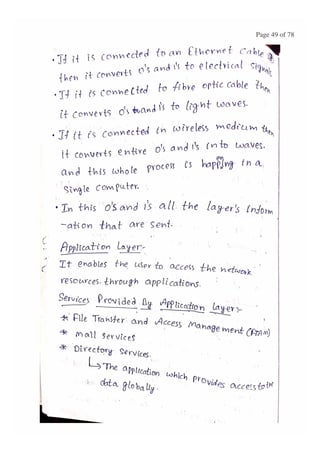 Page 49 of 78
• If it is connected to an Ethernet cable
then it converts 0's and 1's to electrical signals
• If it is connected to fibre optic cable then
it converts 0's and 1's to light waves.
• If it is connected in wireless medium then
it converts entire 0's and 1's into waves.
and this whole process is happing in a
single computer.
• In this 0's and 1's all the layer's inform
-ation that are sent.
Application Layer:-
It enables the user to access the network
resources. through applications.
Services Provided By Application layer:-
* File Transfer and Access Management (FTAM)
* mail services
* Directory Services.
↳ The application which provides access to the
data globally.